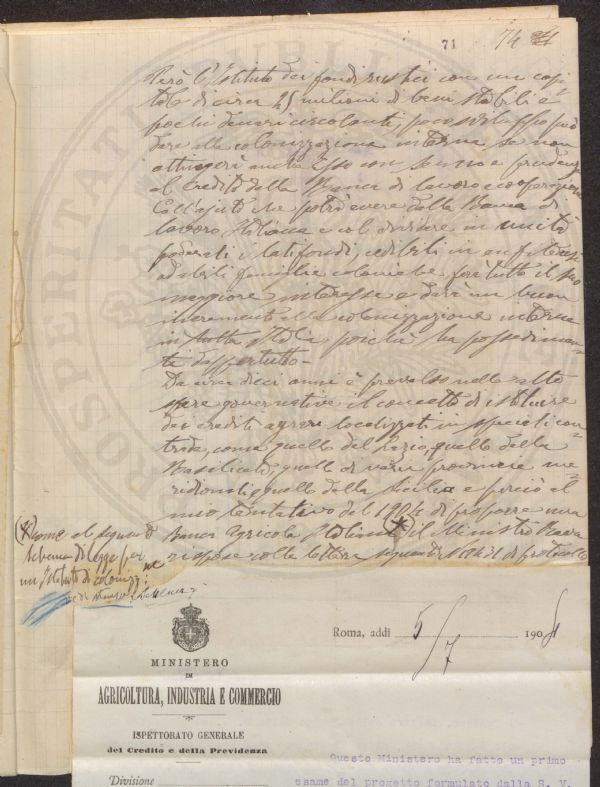 71 74
Però l'Istituto dei fondi rustici con un capi-
tale di circa 25 milioni di beni stabili e
pochi denari circolanti, poco sviluppo può
dare alla colonizzazione interna se non
attingerà anche esso con senno e prudenza
al Credito della Banca di lavoro e cooperazione
Coll'ajuto che potrà avere dalla Banca di
lavoro Italiana e col dividere in unità
poderali i latifondi, cedibili in enfiteusi
ad abili famiglie coloniche farà tutto il suo
maggiore interesse e darà un buon
incremento alla colonizzazione interna
in tutta Italia poichè ha possedimen-
ti dappertutto.
Da circa dieci anni è prevalso nelle alte
sfere governative il concetto di istituire
dei crediti agrari localizzati in speciali con-
trade, come quello del Lazio, quello della
Basilicata, quello di varie provincie me-
ridionali, quello della Sicilia e perciò al
mio tentativo del 1904 di proporre una
Banca Agricola Italiana (*) il Ministro Rava
rispose colla lettera seguente di protocollo
(*) come al seguente
schema di legge per
un Istituto di colonizz:ne
MINISTERO
DI
AGRICOLTURA, INDUSTRIA E COMMERCIO
ISPETTORATO GENERALE
del Credito e della Previdenza
Divisione
Roma, addì 5/7 1904
Questo Ministero ha fatto un primo
esame del progetto formulato dalla S. V.
PROSPERITATI PUBLI